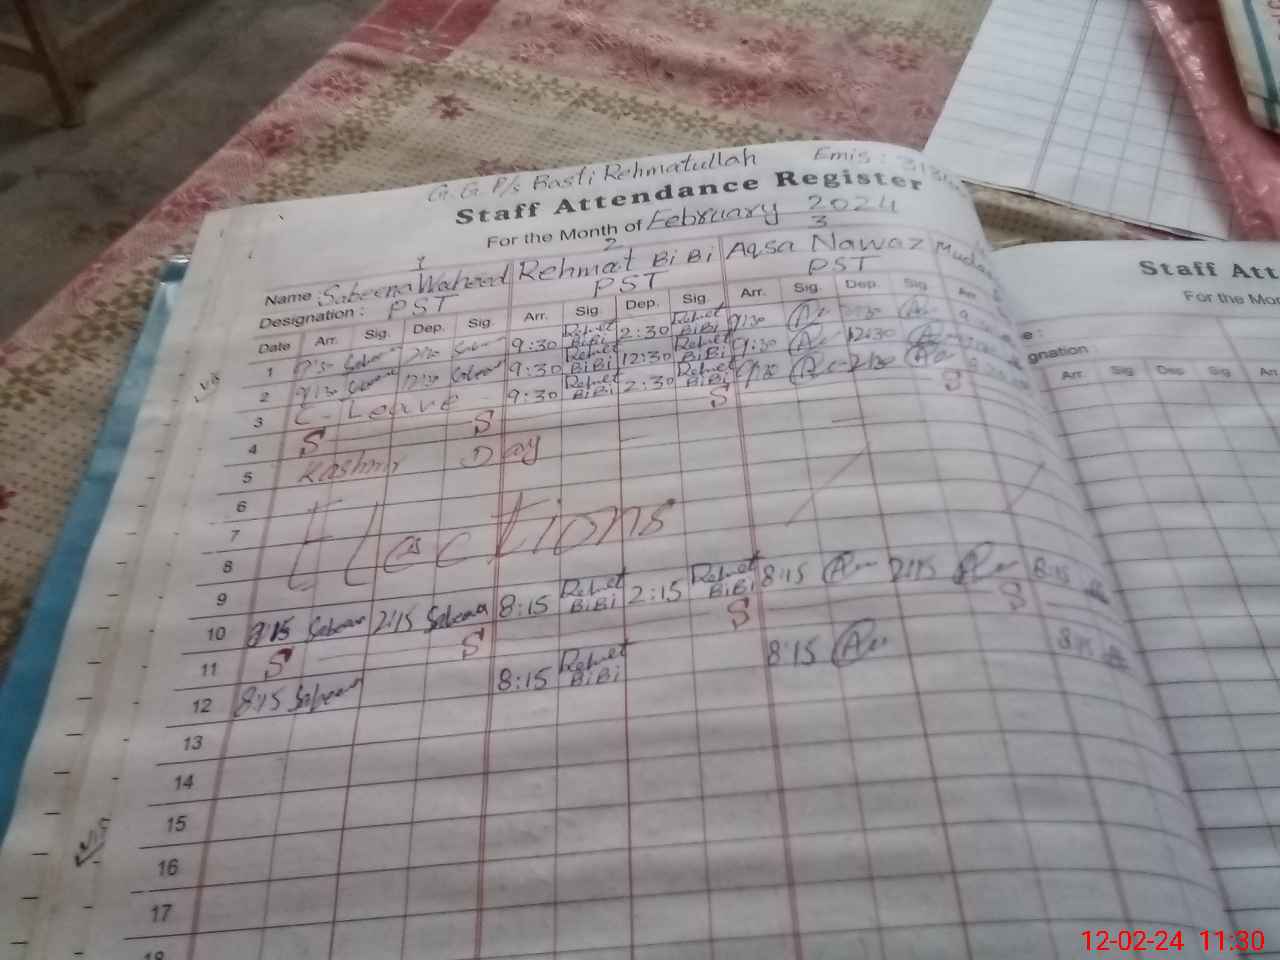 G.G.P/s Basti Rehmatullah Emis:
Staff Attendance Register
For the Month of February 2024
1 2 3
Name: Sabeena Waheed Rehmat BiBi Aqsa Nawaz
Designation: PST PST PST
Date Arr. Sig. Dep. Sig. Arr. Sig. Dep. Sig. Arr. Sig. Dep. Sig. Arr.
1 9:30 Rehmet BiBi 2:30 Rehmet BiBi 9:30
2 9:30 12:30 9:30 Rehmet BiBi 12:30 Rehmet BiBi 9:30 12:30
3 C-Leave 9:30 Rehmet BiBi 2:30 Rehmet BiBi 9:30 2:30
4 S S S S
5 Kashmir Day
6
7 Elections
8
9
10 8:15 Sabeena 2:15 Sabeena 8:15 Rehmet BiBi 2:15 Rehmet BiBi 8:15 2:15 8:15
11 S S S S
12 8:15 Sabeena 8:15 Rehmet BiBi 8:15 8:15
13
14
15
16
17
18
Staff Att
For the Mon
e:
gnation:
Arr. Sig Dep Sig Arr
12-02-24 11:30